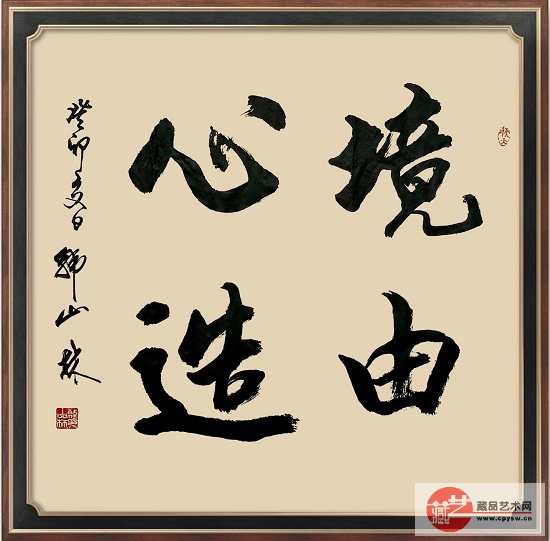 境由
心造
癸卯夏日 韩山林
藏艺
藏品艺术网
www.cpysw.cn